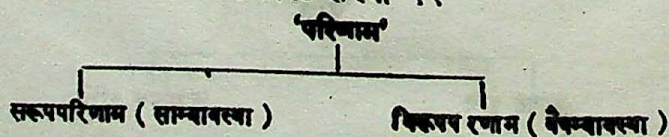 'परिणाम'
सरूपपरिणाम ( साम्यावस्था ) विरूपप रणाम ( वैषम्यावस्था )